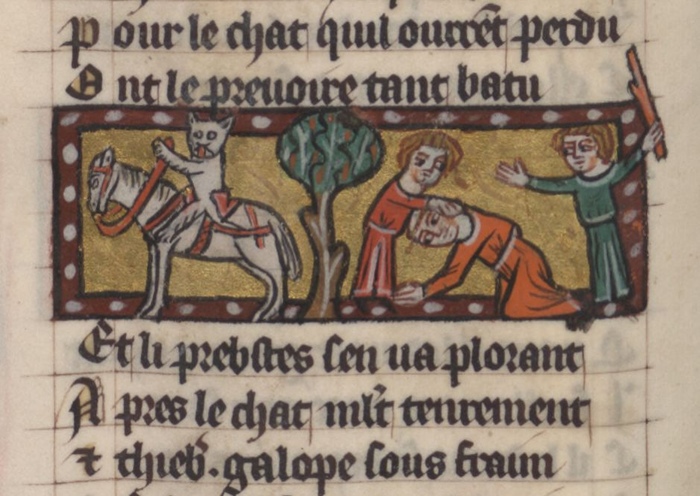 Pour le chat quil ourrēt perdu
Ont le preuoire tant batu
Et li prebstes sen ua plorant
Apres le chat ml't tenrement
⁊ thieb'. galope sous fraim